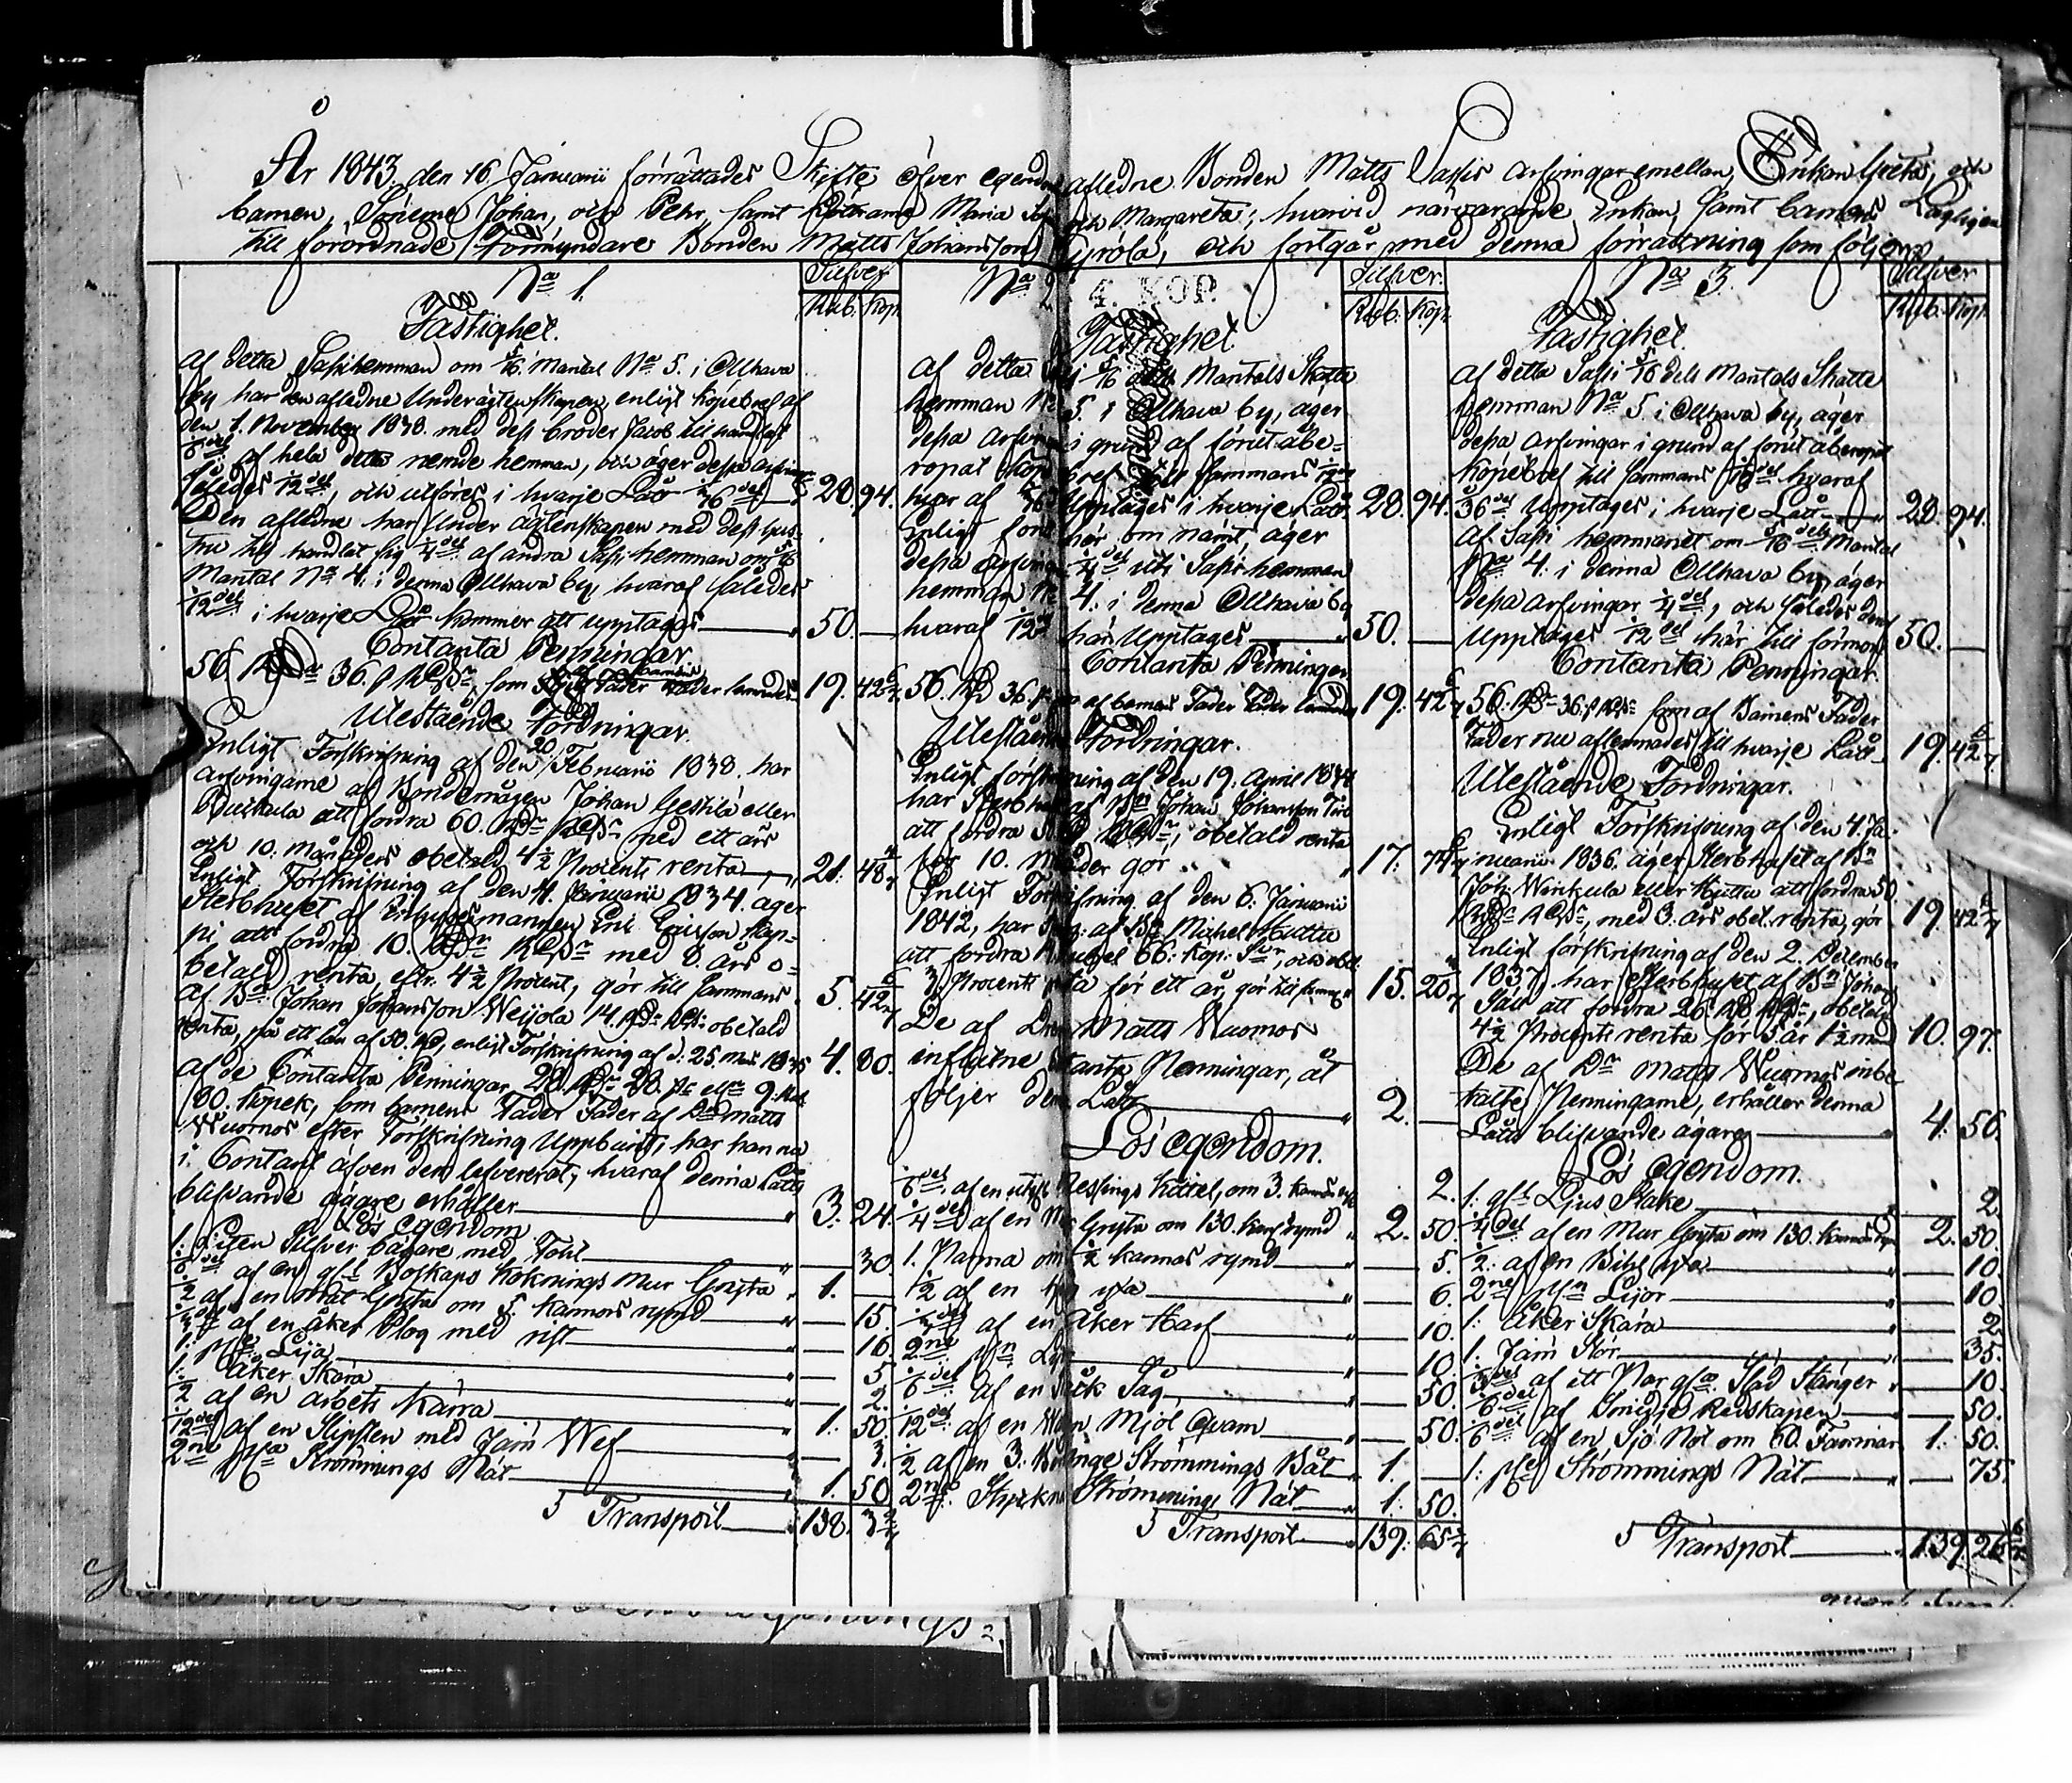 År 1843. den 16 Januarii förrättades Skifte öfver egend afledne Bonden Matts Sassis arfvingar emellan, Enkan Greta, och
barnen, Sönerne Johan, och Pehr, samt Maria och Margareta; hvarvid närvarande Enkan, samt barnens Lagligen
till förordnade Förmyndare Bonden Matts Johansson Tyrola, och fortgår med denna förrättning som följer
No 1. Silfver
Rub. Kop.
Fastighet.
Af detta Sassi hemman om 5/16 Mantal No 5. i Ollhava
by har den afledne Under ägtenskapen enligt köpebref af
den 1. November 1838. med dess broder Jacob till handlat
1/6 del af hela detta nemde hemman, och äger dessa arfvingar
således 12 del, och utföres i hvarje Lått 1/36 del 28. 94.
Den afledne har Under ägtenskapen med dess hus-
tru till handlat sig 1/4 del af andra Sassi hemman om 5/16
Mantal No 4. i denna Ollhava by, hvaraf således
1/12 del i hvarje Lått kommer att upptagas 50. —
Contanta Penningar.
56 36. som Fader Fader 19. 42 6/7
Utestående Fordringar.
Enligt Förskrifning af den 20 Februarii 1838. har
arfvingarne af Bondemågen Johan Gestilä eller
att fordra 60. med ett års
och 10. Månaders obetald 4 1/2 Procents renta 21. 48
Enligt Förskrifning af den 4. Januarii 1834. äger
Sterbhuset af Inhysesmannen Eric Ericsson Kap-
pi att fordra 10. med 8. års o-
betald renta, eftr. 4 1/2 Procent, gör till sammans 5. 42 6/7
Af Bn Johan Johansson Weijola 14. obetald
renta, på ett lån af 50. enligt Förskrifning af d: 25 1835 4. 80.
Af de Contanta Penningar 28. 28. 9.
80. Kopek, som barnens Fader Fader af Matts
Wuornos efter Förskrifning Uppburit, har han nu
i Contant äfven den lefvererat, hvaraf denna Lått
blifvande ägare erhåller 3. 24.
Lös egendom
1. Liten Silfver bägare med Fohl — 30.
1/6 del af en Boskaps koknings Mur Gryta 1. —
1/2 af en Mat Gryta om 5. kannors rymd — 15.
1/2 af en åker Plog med rist — 16.
1: Lija — 5
1: Åker Skära — 2.
1/2 af en arbets kärra 1. 50.
1/12 del af en Slipsten med Järn Wef — 3.
2ne Strömmings Nät 1. 50
5 Transport 138. 3 2/7
No 2 4. KOP. Silfver.
Rub. Kop.
Fastighet
Af detta 5/16 dels Mantals Skatte
hemman 5. i Ollhava by, äger
dessa arfvin i grund af förut åbe-
ropat köpe bref till sammans 1/12
hvar af 1/36 Upptages i hvarje Lått 28. 94.
Enligt förut här om nämt äger
dessa arfvin 1/4 del uti Sassi hemman
hemman No 4. i denna Ollhava by
hvaraf 1/12 här Upptages 50. —
Contanta Penningar
56. 36. af barnens Fader Fader 19. 42 6/7
Utestående Fordringar.
Enligt förskrifning af den 19. April 1834
har Sterbhuset af Bn Johan Johansson
att fordra obetald renta
för 10. Månader gör 17. 74
Enligt Förskrifning af den 6. Januarii
1842, har af Bn Michel Huttu
att fordra 66. Kop. och obet.
3 Procents renta för ett år, gör till sammans 15. 20
De af Matts Wuornos
influtne Contanta Penningar, åt
följer denna Lått 2. —
Lös egendom.
1/6 del af en Messings kittel, om 3. kannors 2.
1/4 del af en Mur Gryta om 130. kan: rymd 2. 50.
1. Panna om 1/2 kannas rymd — 5.
1/2 af en yxa — 6.
1/2 del af en Åker Harf — 10.
2ne — 10.
1/6 del af en Såg — 50.
1/12 del af en Mjöl Qvarn — 50.
1/2 af en 3. Strömmings Båt 1. —
2ne Strömmings Nät 1. 50.
5 Transport 139. 65
No 3. Silfver.
Rub. Kop.
Fastighet.
Af detta Sassi 5/16 dels Mantals Skatte
hemman No 5. i Ollhava by, äger
dessa arfvingar i grund af förut åberopat
köpebref till sammans 1/12 del hvaraf
1/36 del Upptages i hvarje Lått 28. 94.
Af Sassi hemmanet om 5/16 dels Mantal
No 4. i denna Ollhava by, äger
dessa arfvingar 1/4 del, och således deraf
Upptages 1/12 del här till förmon 50. —
Contanta Penningar.
56. 36. som af Barnens Fader
Fader nu aflemnades till hvarje Lått 19. 42 6/7
Utestående Fordringar.
Enligt Förskrifning af den 4. Ja-
nuarii 1836. äger Sterbhuset af Bn
Joh: Winikula eller Huttu att fordra 50.
med 3. års obet. renta, gör 19. 42 6/7
Enligt förskrifning af den 2. December
1837, har Sterbhuset af Bn Johan
att fordra 26. obetald
4 1/2 Procents renta för 5 år 1 1/2 mån 10. 97.
De af Matts Wuornos inbe-
talte Penningarne, erhåller denna
Lått blifvande ägare 4. 56.
Lös egendom.
1. Ljus Stake — 2.
1/4 del af en Mur Gryta om 130. kannors 2. 50.
1/2 af en Bihl yxa — 10.
2ne Lijor — 10
1: Åker Skära — 2
1. Järn Stör — 35.
af ett Par Släd Stänger — 10.
1/6 del af Smedje Redskapen — 50.
1/6 del af en Sjö Not om 60. Famnar 1. 50.
1: Strömmings Nät — 75.
5 Transport 139. 26 6/7